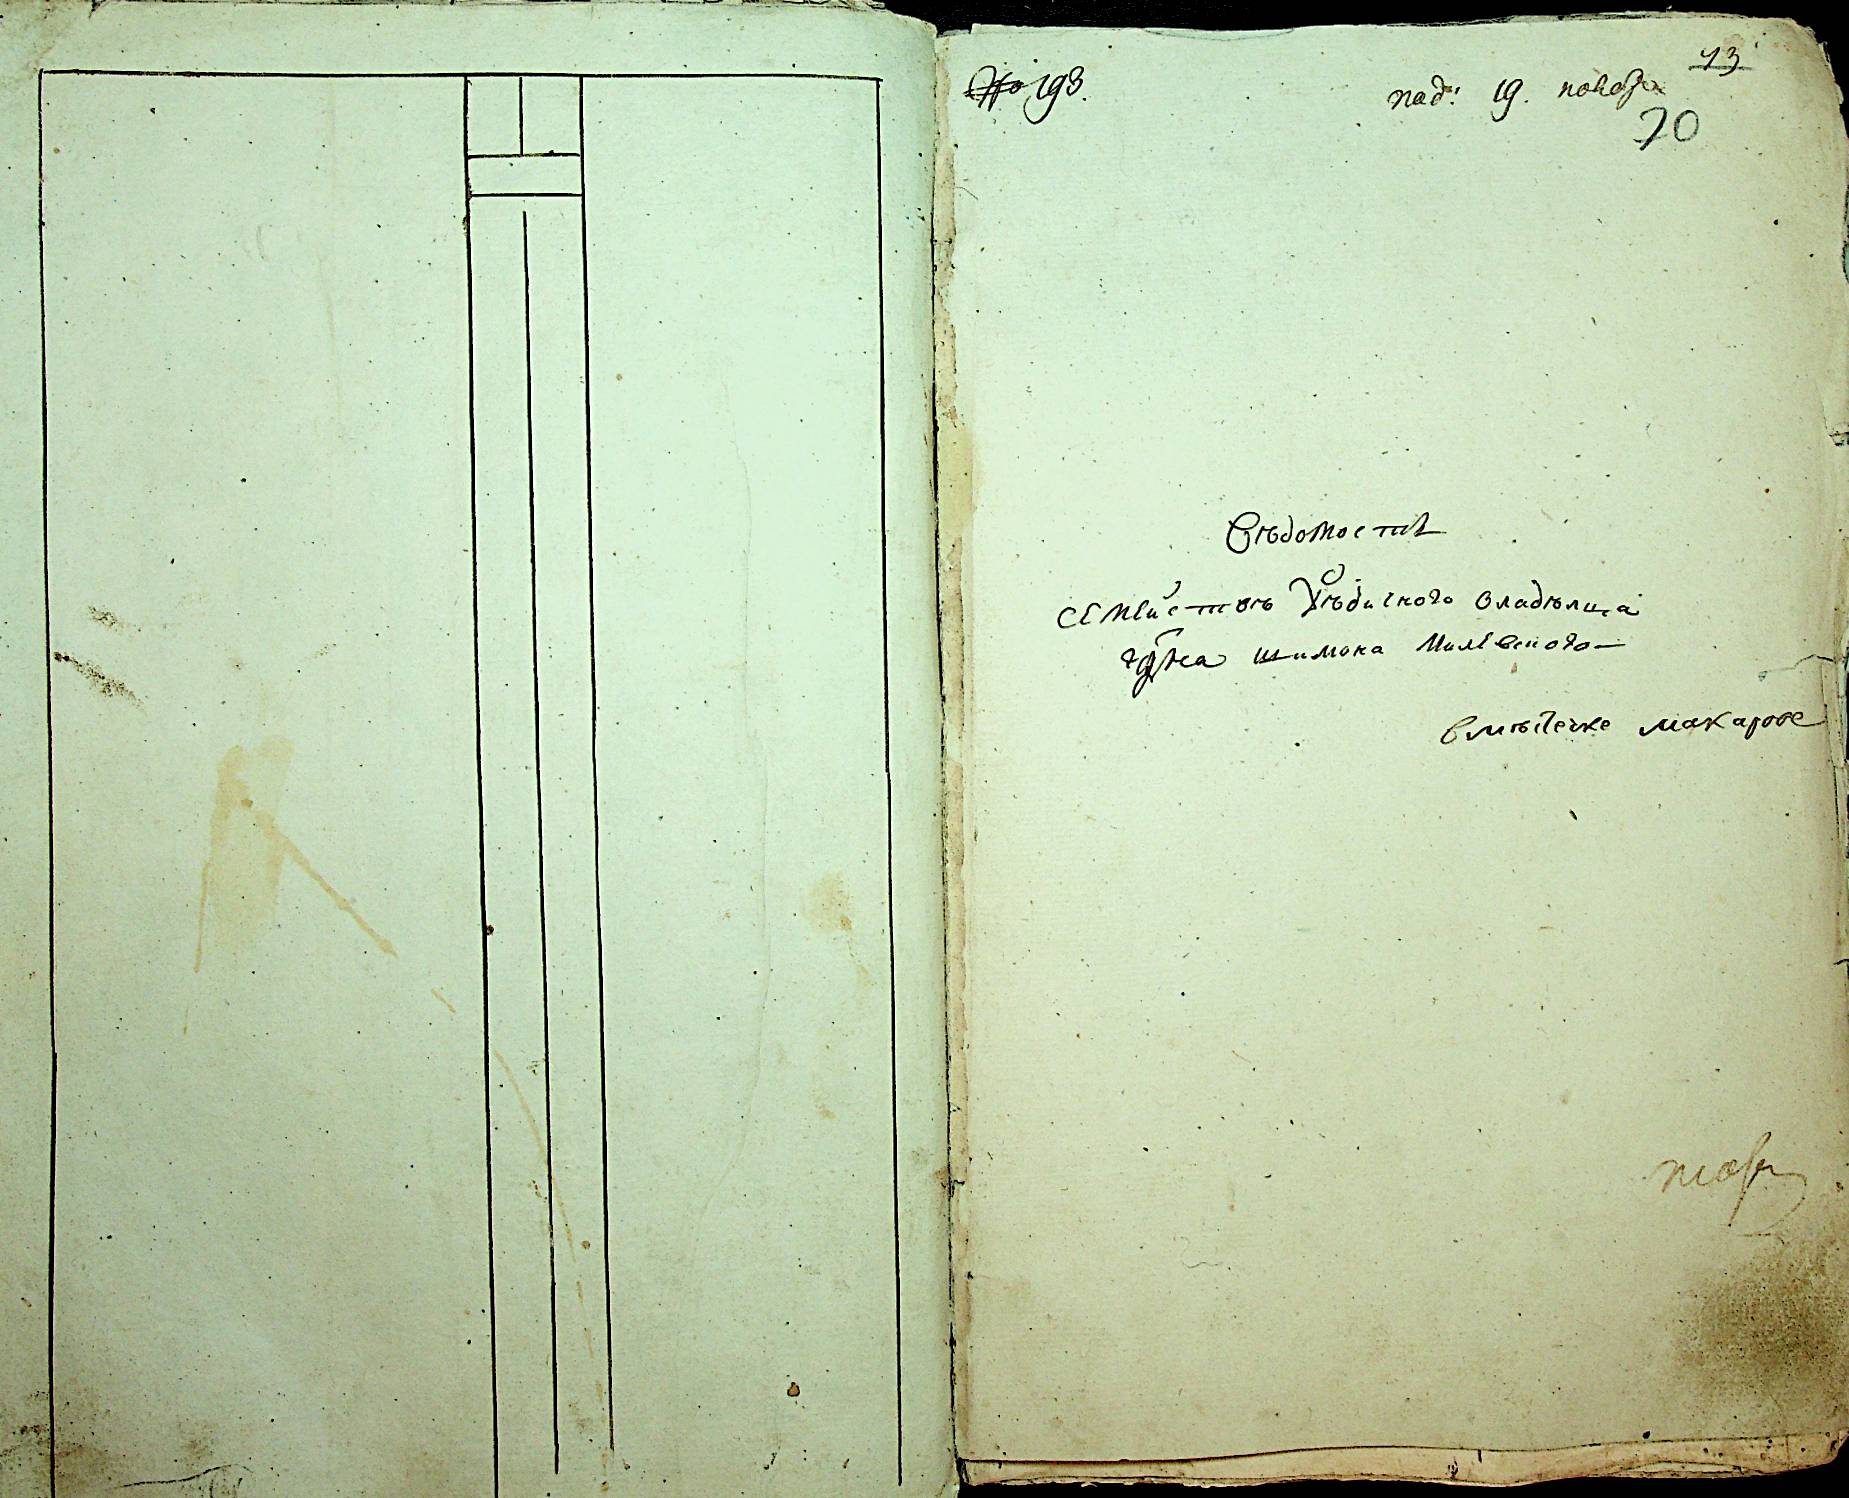 № 193.
под: 19. ноября
13
70
Вѣдомость
семействъ Уѣдиского владѣлца
графа шимона Милевского
вмѣстечке макарове